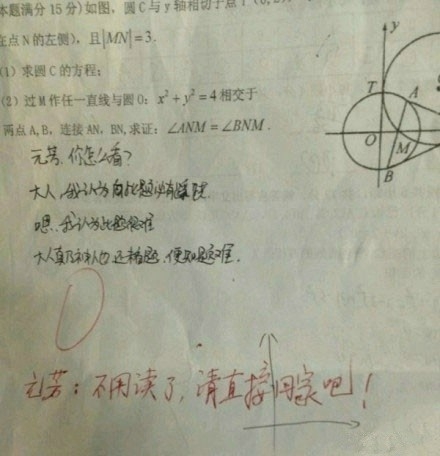 本题满分15分)如图，圆C与y轴相切于点T(0,2)
在点N的左侧)，且|MN|=3.
(1)求圆C的方程；
(2)过M作任一直线与圆O：x²+y²=4相交于
两点A,B，连接AN，BN,求证：∠ANM=∠BNM.
y
T
A
O
M
B
元芳，你怎么看？
大人，我认为
嗯，我认为此题很难
大人真乃神人也
元芳：不用读了，请直接回家吧！